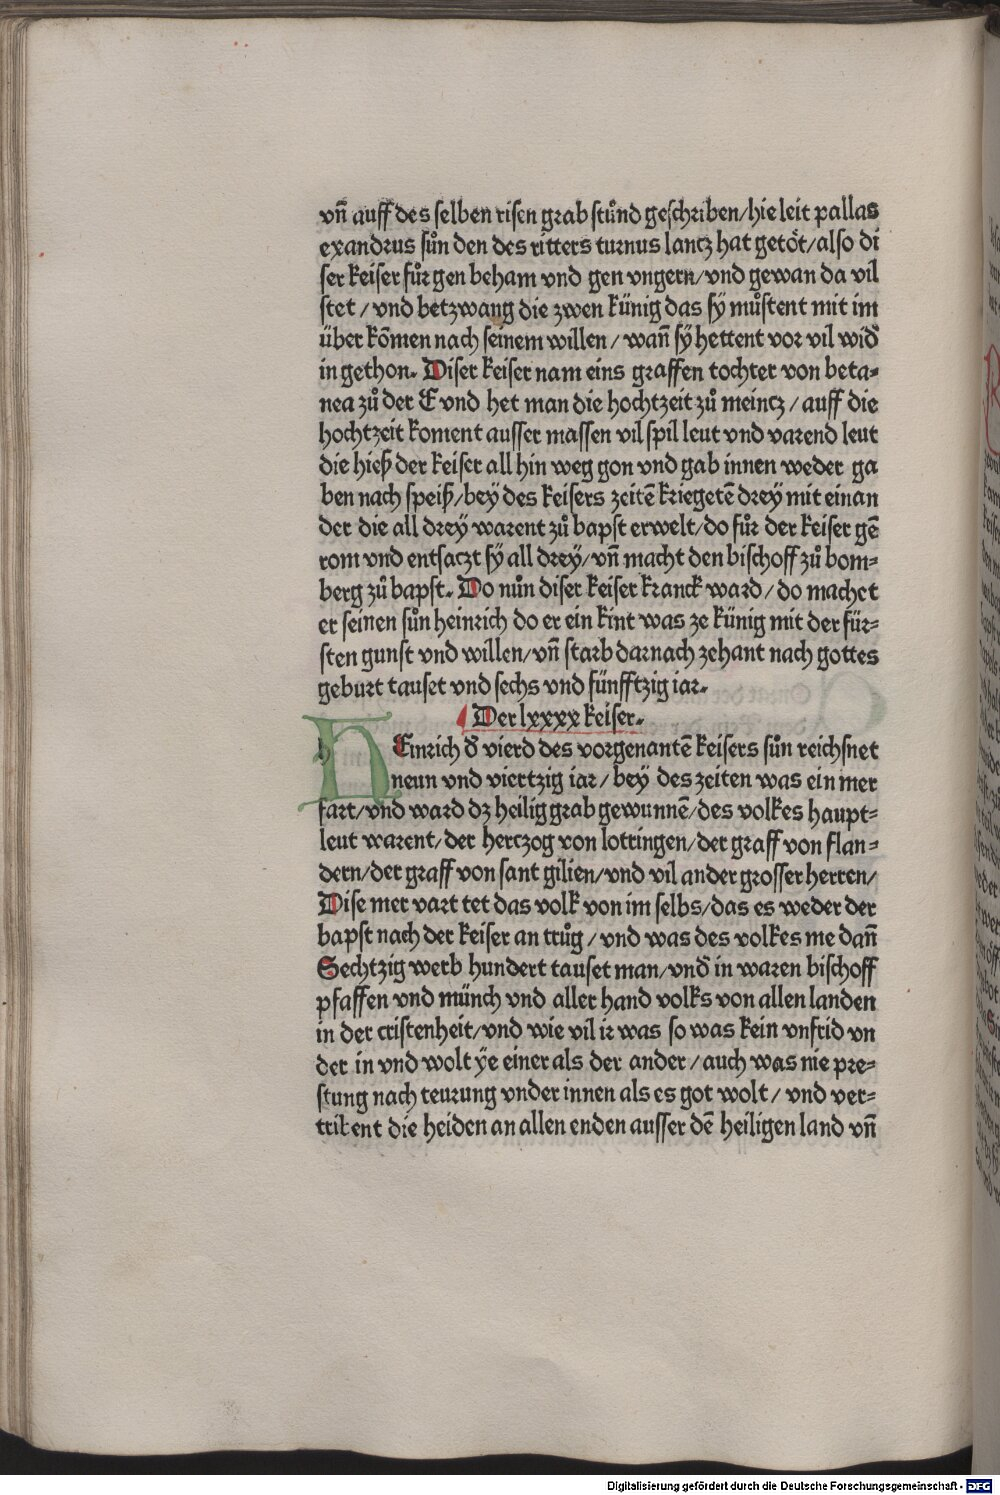 vn̄ auff des selben risen grab stůnd geschriben/hie leit pallas
exandrus sůn den des ritters turnus lantz hat getöt/also di
ser keiser fůr gen beham vnd gen vngern/vnd gewan da vil
stet/vnd betzwang die zwen künig das sÿ můstent mit im
über kōmen nach seinem willen/wan̄ sÿ hettent vor vil wid̄
in gethon. Diser keiser nam eins graffen tochter von beta⸗
nea zů der E vnd het man die hochtzeit zů meintz/auff die
hochtzeit koment ausser massen vil spil leut vnd varend leut
die hieß der keiser all hin weg gon vnd gab innen weder ga
ben nach speiß/beÿ des keisers zeitē kriegetē dreÿ mit einan
der die all dreÿ warent zů bapst erwelt/do fůr der keiser gē
rom vnd entsaczt sÿ all dreÿ/vn̄ macht den bischoff zů bom⸗
berg zů bapst. Do nůn diser keiser kranck ward/do machet
er seinen sůn heinrich do er ein kint was ze künig mit der für⸗
sten gunst vnd willen/vn̄ starb darnach zehant nach gottes
geburt tauset vnd sechs vnd fünfftzig iar.
Der lxxxx keiser.
HEinrich d̄ vierd des vorgenantē keisers sůn reichsnet
neun vnd viertzig iar/beÿ des zeiten was ein mer
fart/vnd ward dz heilig grab gewunnē/des volkes haupt⸗
leut warent/der herczog von lottringen/der graff von flan⸗
dern/der graff von sant gilien/vnd vil ander grosser herren/
Dise mer vart tet das volk von im selbs/das es weder der
bapst nach der keiser an trůg/vnd was des volkes me dan̄
Sechtzig werb hundert tauset man/vnd in waren bischoff
pfaffen vnd münch vnd aller hand volks von allen landen
in der cristenheit/vnd wie vil ir was so was kein vnfrid vn
der in vnd wolt ÿe einer als der ander/auch was nie pre⸗
stung nach teurung vnder innen als es got wolt/vnd ver⸗
tribent die heiden an allen enden ausser dē heiligen land vn̄
Digitalisierung gefördert durch die Deutsche Forschungsgemeinschaft - DFG